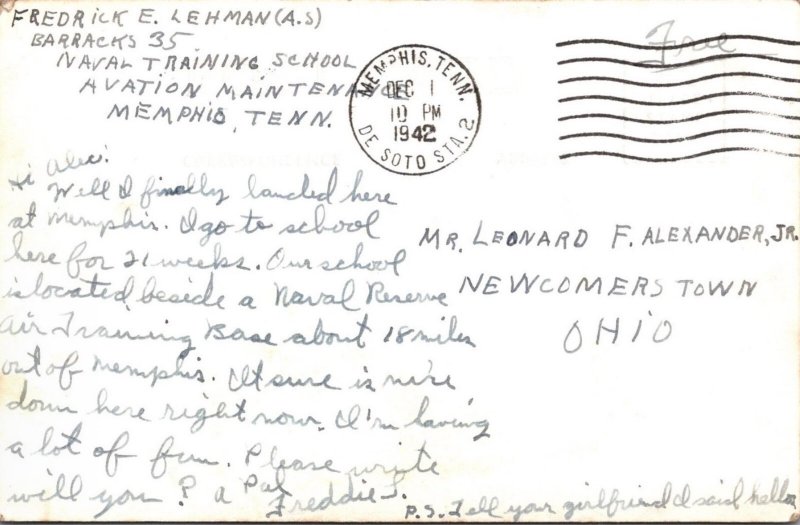 FREDRICK E. LEHMAN (A.S)
BARRACKS 35
NAVAL TRAINING SCHOOL
AVATION MAINTENANCE
MEMPHIS, TENN.
MEMPHIS, TENN.
DEC 1
10 PM
1942
DE SOTO STA. 2
Free
Hi Alec:
Well I finally landed here
at Memphis. I go to school
here for 21 weeks. Our school
is located beside a Naval Reserve
Air Training Base about 18 miles
out of Memphis. It sure is nice
down here right now. I'm having
a lot of fun. Please write
will you? a Pal
Freddie L.
P.S. Tell your girlfriend I said hello
MR. LEONARD F. ALEXANDER, JR.
NEWCOMERSTOWN
OHIO